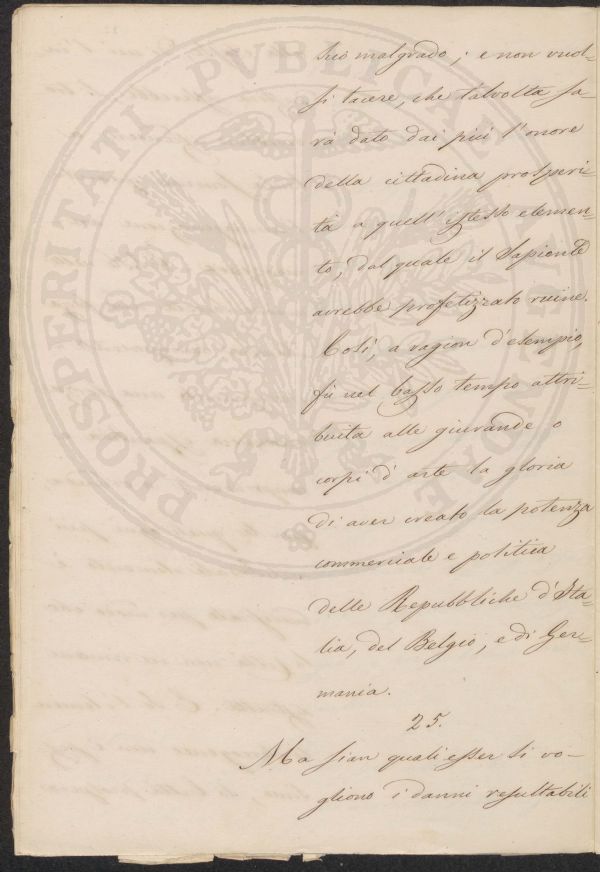 PROSPERITATI PVBLICAE AVGENDAE
suo malgrado; e non vuol-
si tacere, che talvolta sa-
rà dato dai più l'onore
della cittadina prosperi-
tà a quell'istesso elemen-
to, dal quale il Sapiente
avrebbe profetizzato ruine.
Così, a ragion d'esempio,
fù nel basso tempo attri-
buita alle giurande o
corpi d'arte la gloria
di aver creato la potenza
commerciale e politica
delle Repubbliche d'Ita-
lia, del Belgio, e di Ger-
mania.
25.
Ma sian quali esser si vo-
gliono i danni resultabili